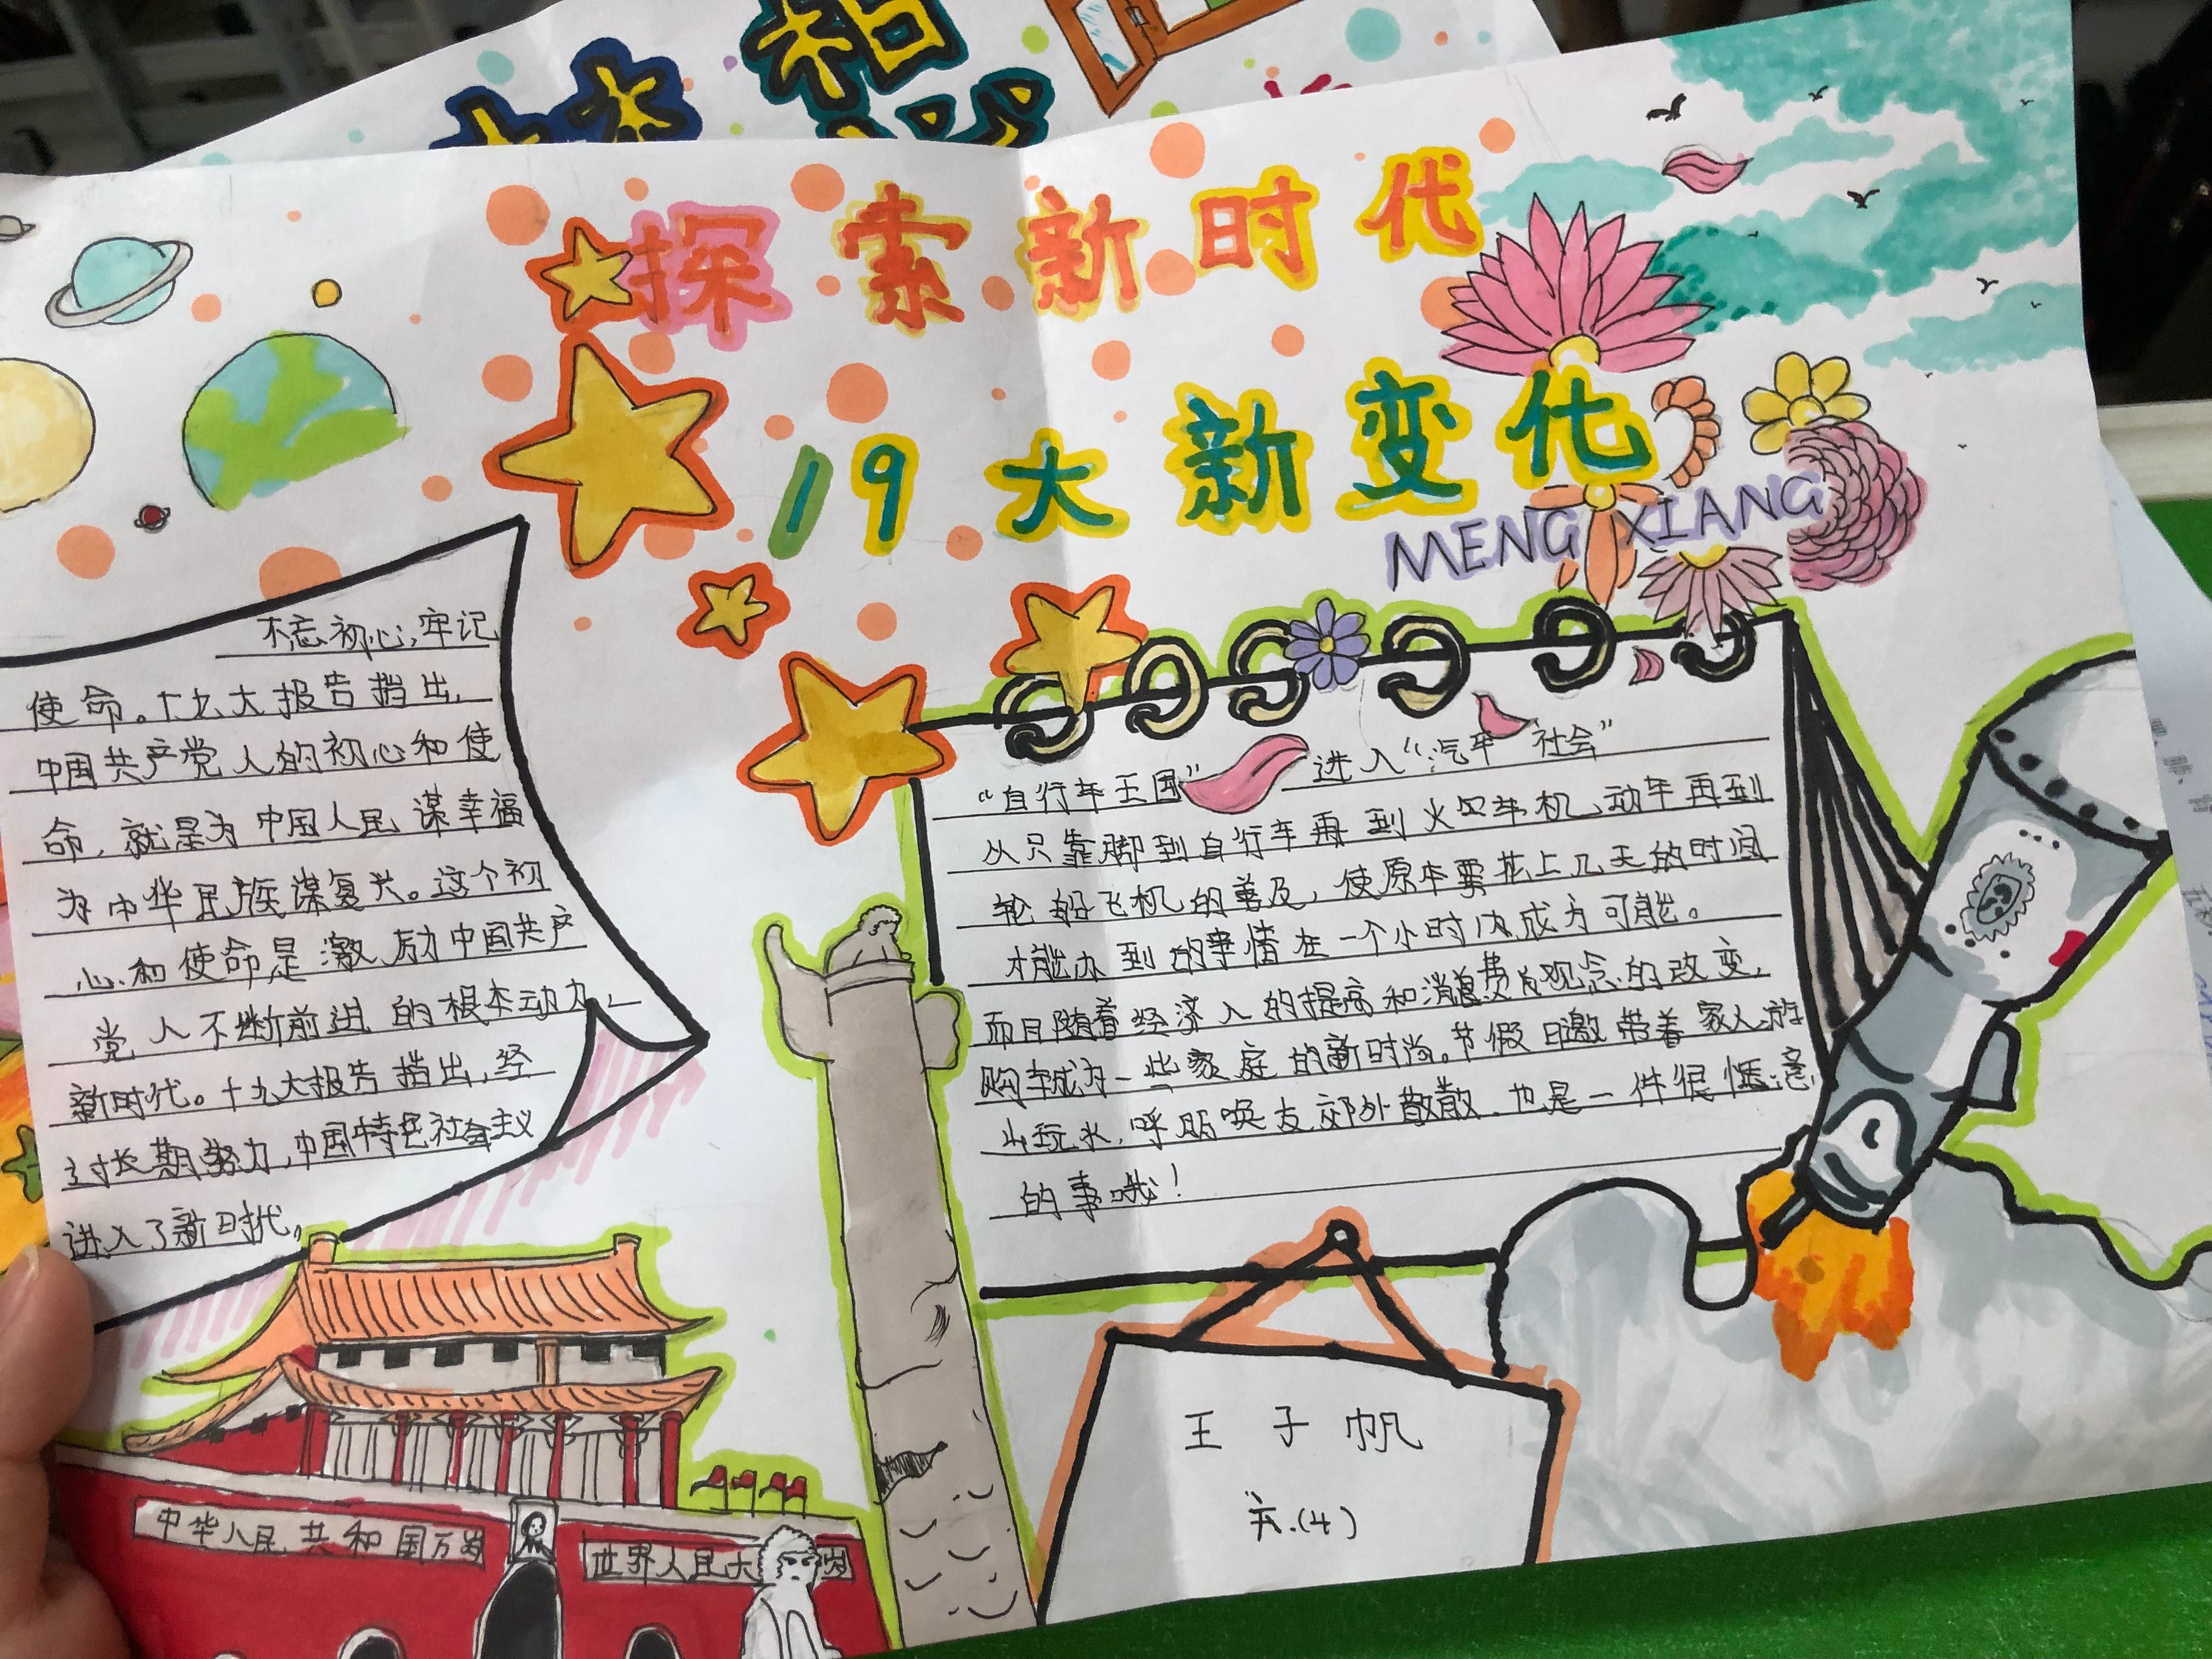 想
探索新时代
19大新变化
MENG XIANG
不忘初心,牢记
使命。十九大报告指出,
中国共产党人的初心和使
命,就是为中国人民谋幸福
为中华民族谋复兴。这个初
心和使命是激励中国共产
党人不断前进的根本动力
新时代。十九大报告指出,经
过长期努力,中国特色社会主义
进入了新时代。
“自行车王国” 进入“汽车 社会”
从只靠脚到自行车再到火车机动车再到
轮船飞机的普及,使原本要花上几天的时间
才能办到的事情在一个小时内成为可能。
而且随着经济入的提高和消费观念的改变,
购车成为一些家庭的新时尚。节假日邀带着家人游
山玩水,呼朋唤友郊外散散.也是一件很惬意
的事哦!
王子帆
六.(4)
中华人民共和国万岁
世界人民大 岁